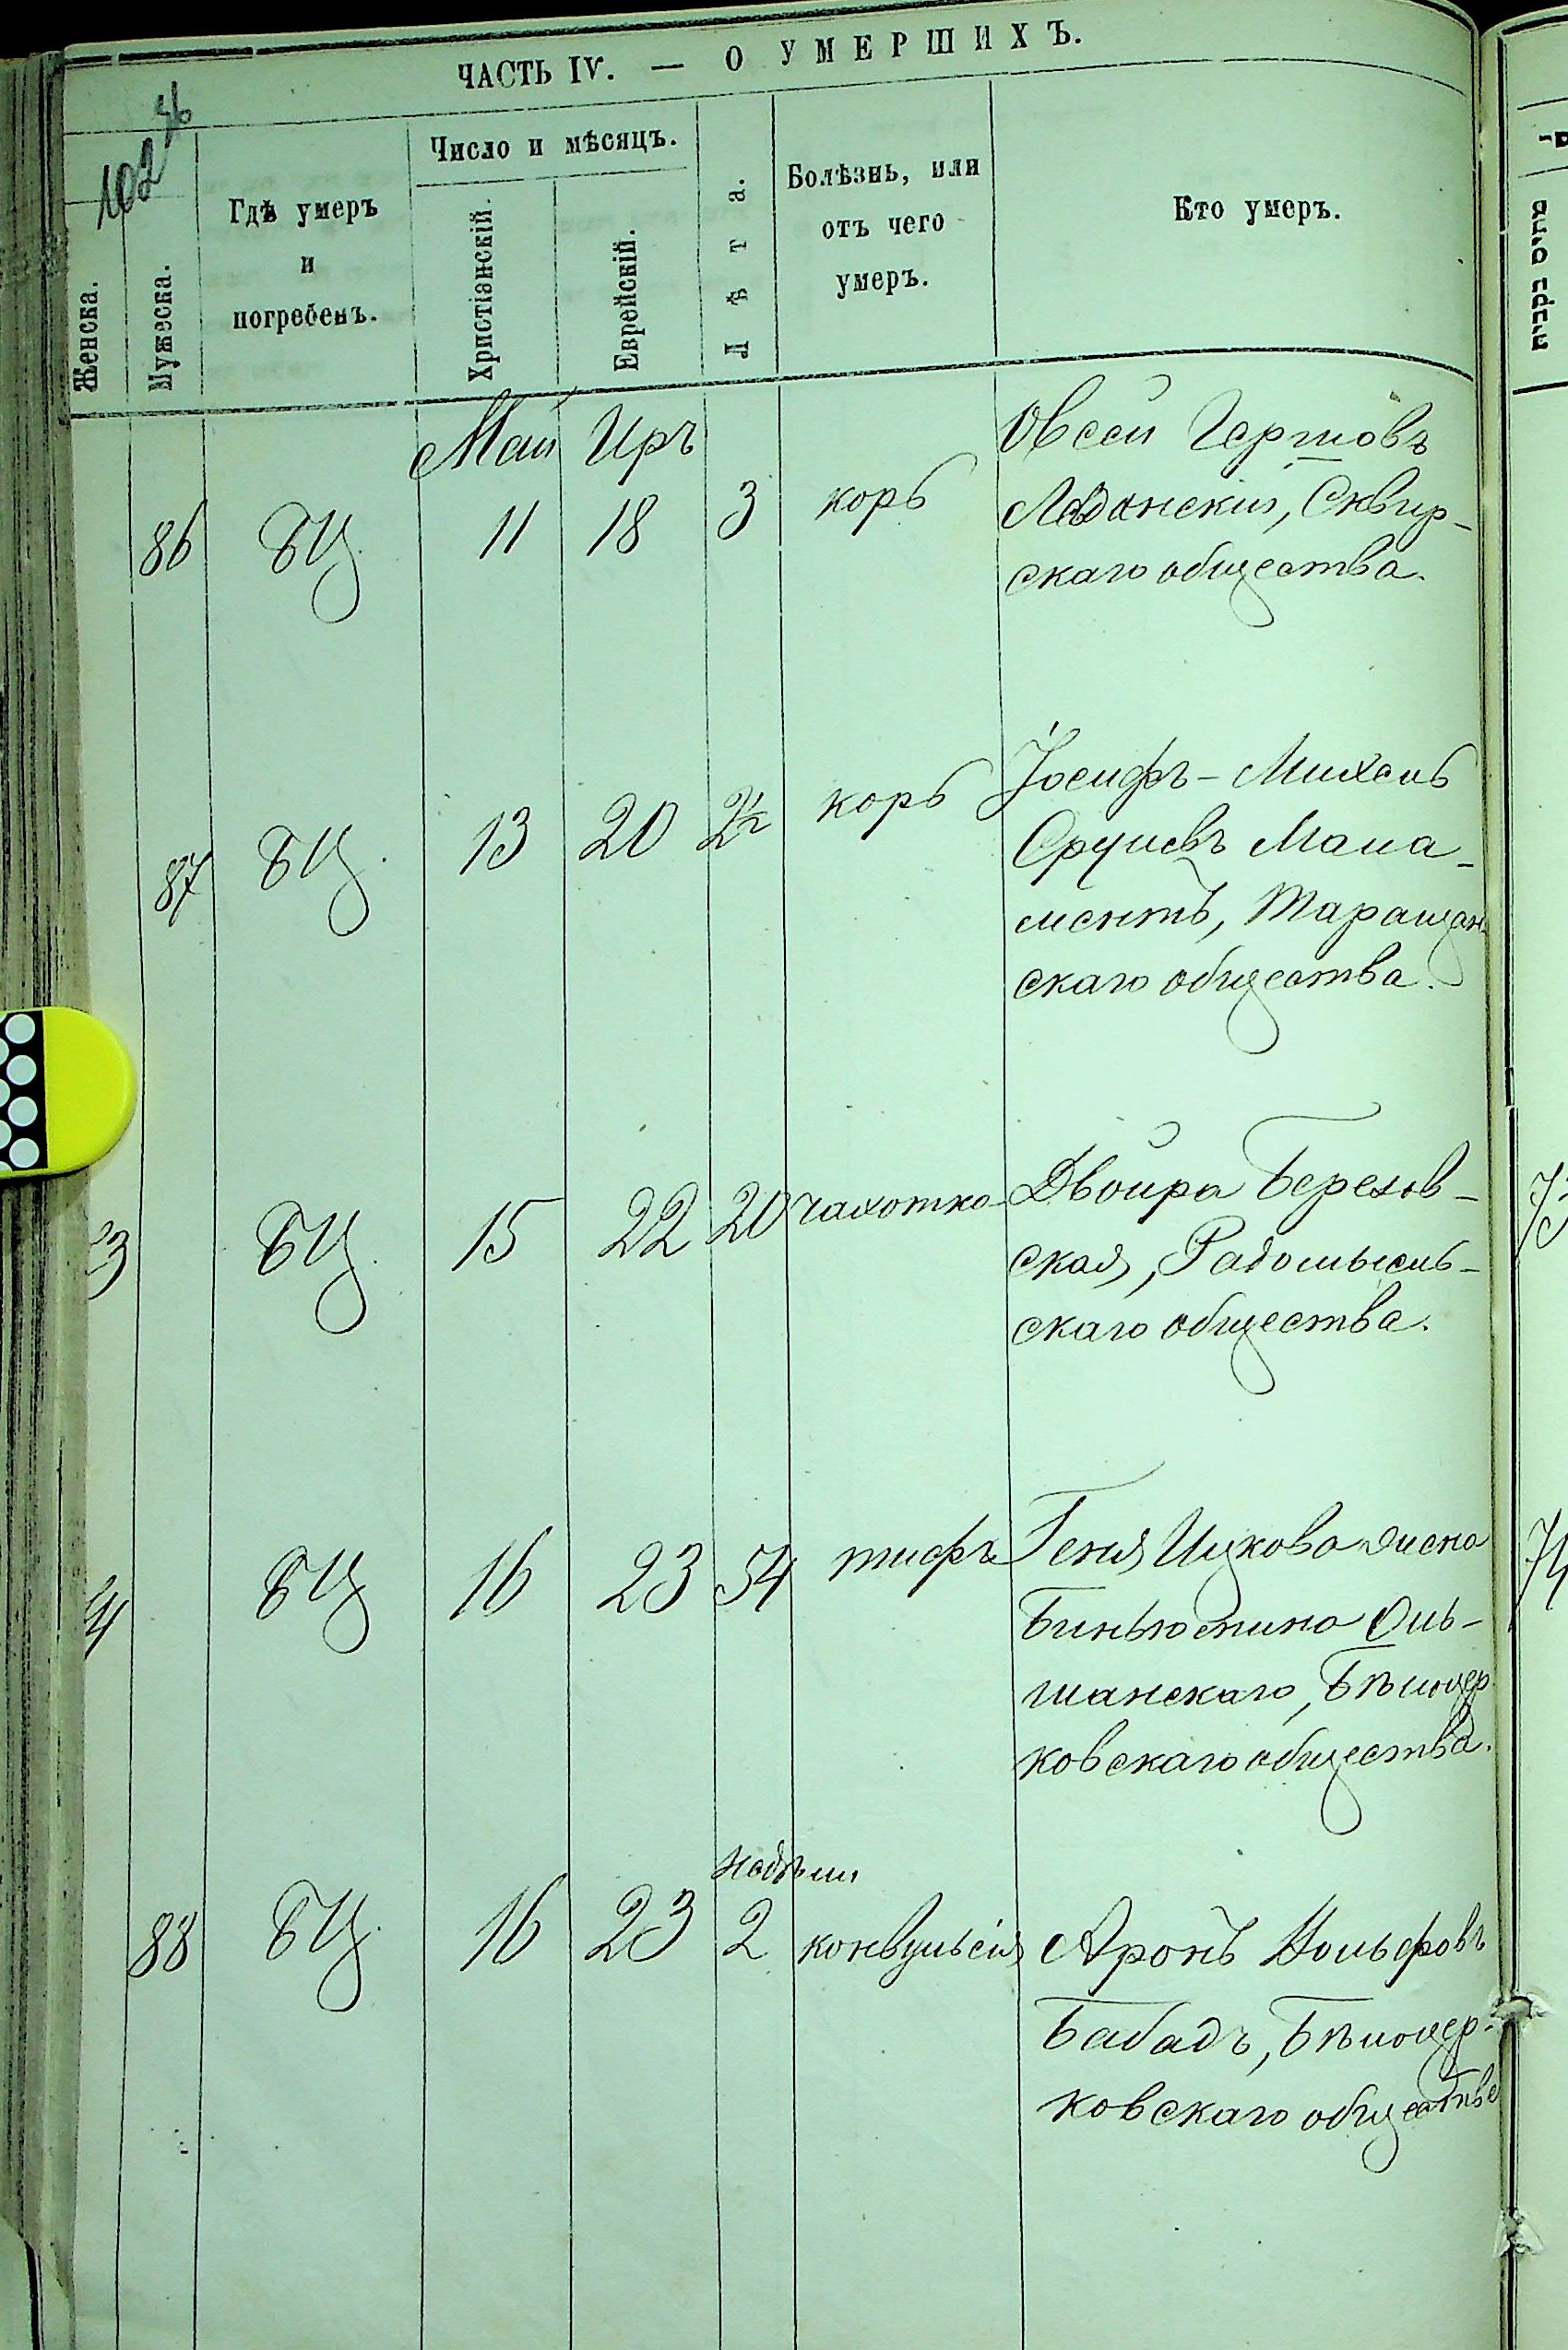 ЧАСТЬ IV. — О УМЕРШИХЪ.
102
Женска.
Мужеска.
Гдѣ умеръ
и
погребенъ.
Число и мѣсяцъ.
Христіанскій.
Еврейскій.
Лѣта.
Болѣзнь, или
отъ чего
умеръ.
Кто умеръ.
Май Иръ
86 БЦ. 11 18 3 корь
Овсей Гершовъ
Сквир-
скаго общества.
87 БЦ. 13 20 2½ корь
Іосифъ-Михель
Сруневъ Мана-
ментъ, Таращан-
скаго общества.
3 БЦ. 15 22 20 чахотка
Двойра Березов-
ская, Радомысль-
скаго общества.
4 БЦ 16 23 54 тифъ
Геня Ицкова жена
Биньомина Оль-
шанскаго, Бѣлоцер
ковскаго общества.
недѣли
88 БЦ. 16 23 2 конвульсія
Аронъ Вольфовъ
Бабадъ, Бѣлоцер-
ковскаго общества
74